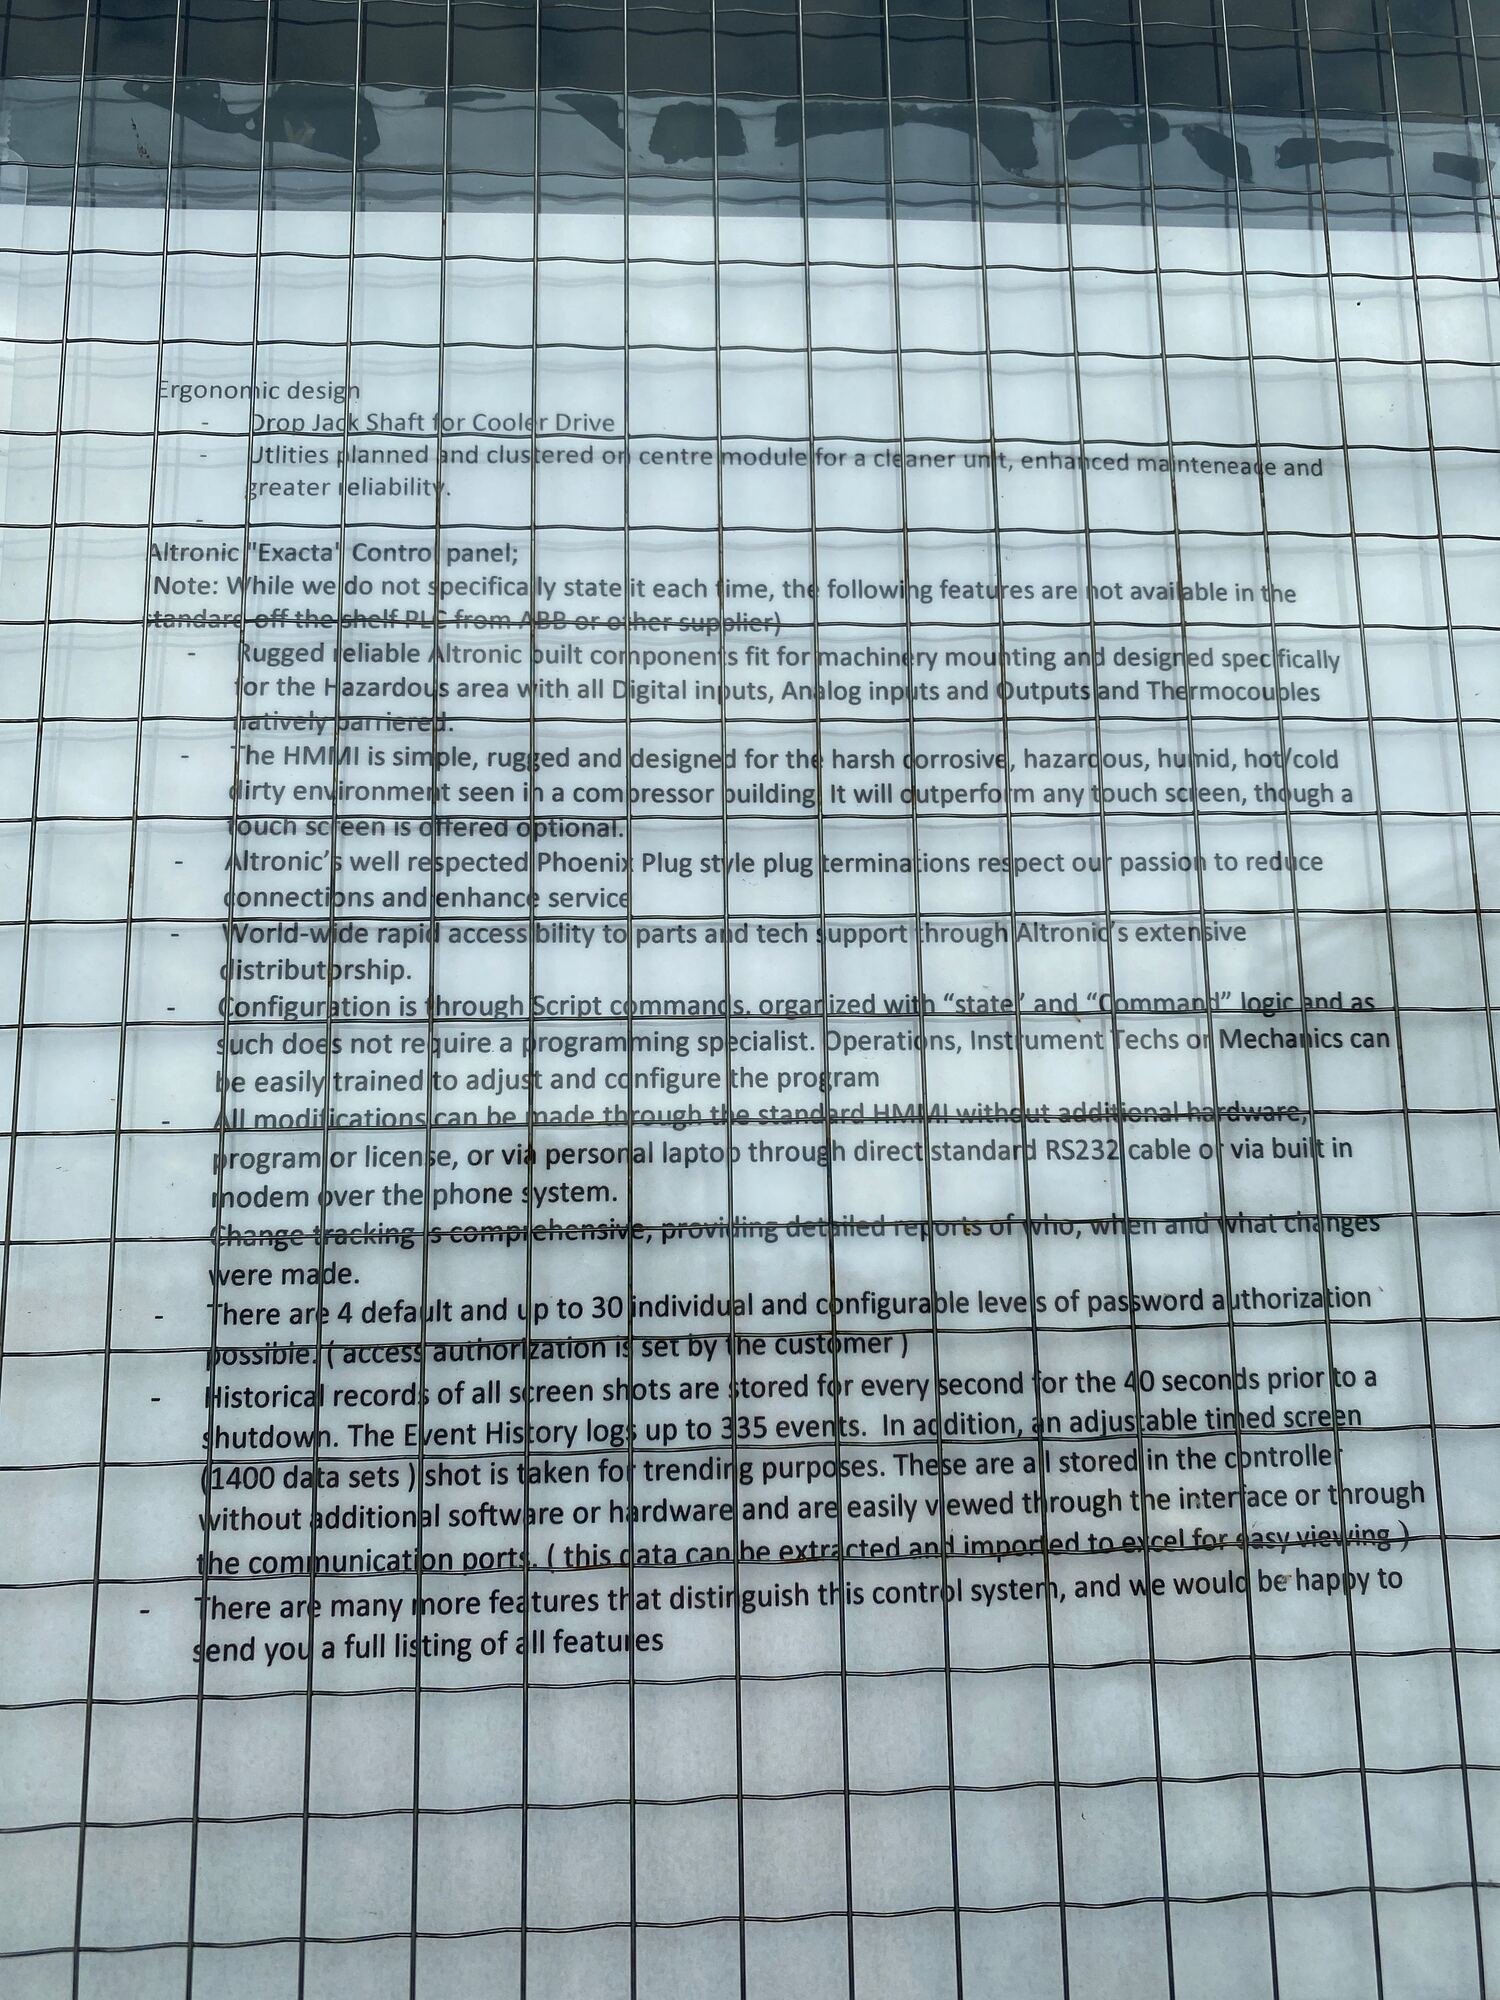 Ergonomic design
- Drop Jack Shaft for Cooler Drive
- Utlities planned and clustered on centre module for a cleaner unit, enhanced mainteneace and
greater reliability.
-
Altronic "Exacta" Control panel;
Note: While we do not specifically state it each time, the following features are not available in the
standard off the shelf PLC from ABB or other supplier)
- Rugged reliable Altronic built components fit for machinery mounting and designed specifically
for the Hazardous area with all Digital inputs, Analog inputs and Outputs and Thermocouples
natively barriered.
- The HMMI is simple, rugged and designed for the harsh corrosive, hazardous, humid, hot/cold
dirty environment seen in a compressor building. It will outperform any touch screen, though a
touch screen is offered optional.
- Altronic's well respected Phoenix Plug style plug terminations respect our passion to reduce
connections and enhance service
- World-wide rapid accessibility to parts and tech support through Altronic's extensive
distributorship.
- Configuration is through Script commands, organized with “state” and “Command” logic and as
such does not require a programming specialist. Operations, Instrument Techs or Mechanics can
be easily trained to adjust and configure the program
- All modifications can be made through the standard HMMI without additional hardware,
program or license, or via personal laptop through direct standard RS232 cable or via built in
modem over the phone system.
Change tracking is comprehensive, providing detailed reports of who, when and what changes
were made.
- There are 4 default and up to 30 individual and configurable levels of password authorization
possible. ( access authorization is set by the customer )
- Historical records of all screen shots are stored for every second for the 40 seconds prior to a
shutdown. The Event History logs up to 335 events. In addition, an adjustable timed screen
(1400 data sets ) shot is taken for trending purposes. These are all stored in the controller
without additional software or hardware and are easily viewed through the interface or through
the communication ports. ( this data can be extracted and imported to excel for easy viewing )
- There are many more features that distinguish this control system, and we would be happy to
send you a full listing of all features